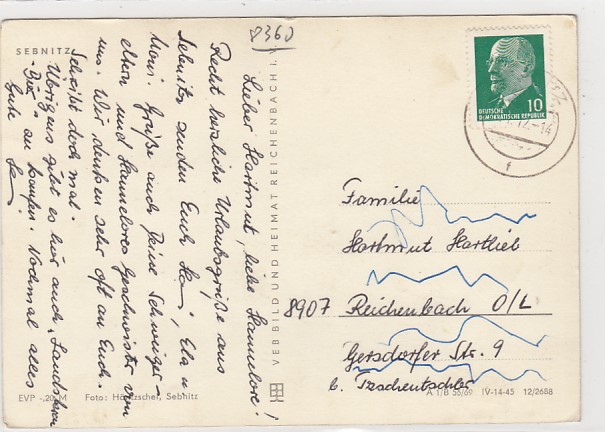 8360
SEBNITZ
Lieber Hartmut, liebe Hannelore!
Recht herzliche Urlaubsgrüße aus
Sebnitz senden Euch Ela u.
Moni. Grüße auch Deine Schwieger-
eltern und Hannelores Geschwister von
uns. Wir denken sehr oft an Euch.
Schreibt doch mal.
Übrigens gibt es hier auch
zu kaufen. Nochmal alles
Gute
VEB BILD UND HEIMAT REICHENBACH I. V.
EVP -,20 M Foto: Häntzschel, Sebnitz
10
DEUTSCHE
DEMOKRATISCHE REPUBLIK
-14
f
Familie
Hartmut Hartlieb
8907 Reichenbach O/L
Gersdorfer Str. 9
b. Tzschentschler
A 1/B 56/69 IV-14-45 12/2688